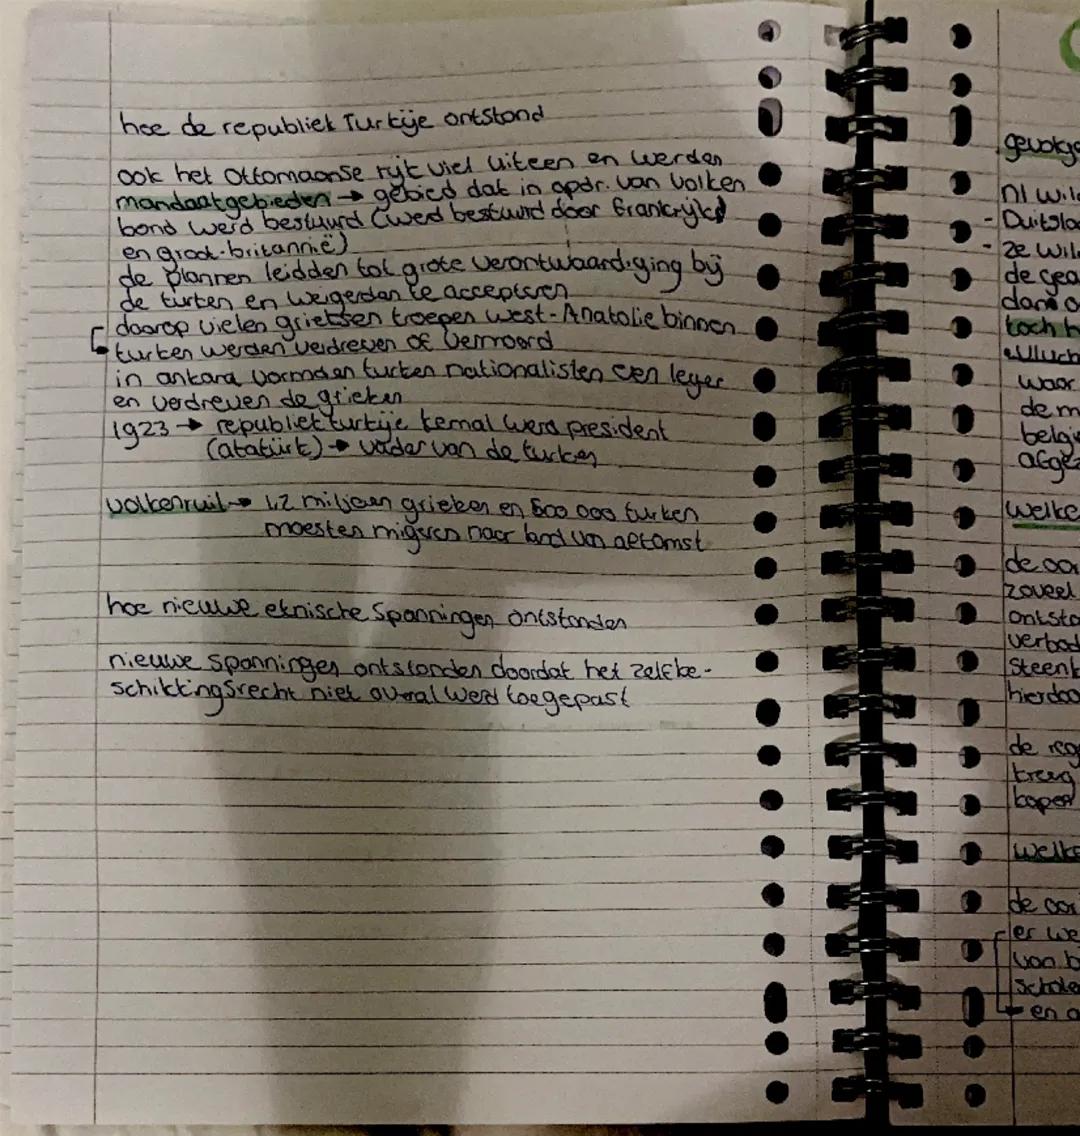 hoe de republiek Turkije ontstond
ook het Ottomaanse rijk viel uiteen en werden
mandaatgebieden → gebied dat in opdr. van volken
bond werd bestuurd (werd bestuurd door frankrijk
en groot-britannië)
de plannen leidden tot grote verontwaardiging bij
de turken en weigerden te accepteren
daarop vielen grieksen troepen west-Anatolie binnen
turken werden verdreven of vermoord
in ankara vormden turken nationalisten een leger
en verdreven de grieken
1923 → republiek turkije kemal werd president
(atatürk) → vader van de turken
volkenruil → 1,2 miljoen grieken en 600 000 turken
moesten migeren naar land van afkomst
hoe nieuwe etnische spanningen ontstonden
nieuwe spanningen ontstonden doordat het zelfbe-
schikkingsrecht niet overal werd toegepast
nl
de
toch
waar
de
welke
zoveel
hierdoor
de
kreeg
welke
de
er
van
en